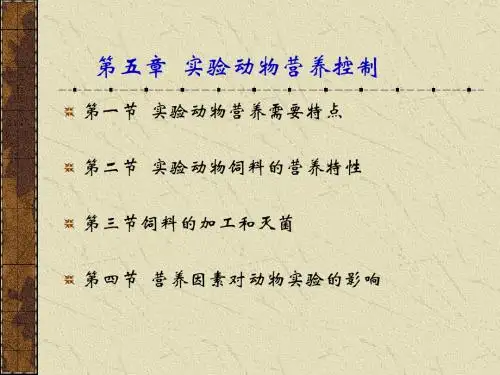 第五章 实验动物营养控制
第一节 实验动物营养需要特点
第二节 实验动物饲料的营养特性
第三节饲料的加工和灭菌
第四节 营养因素对动物实验的影响